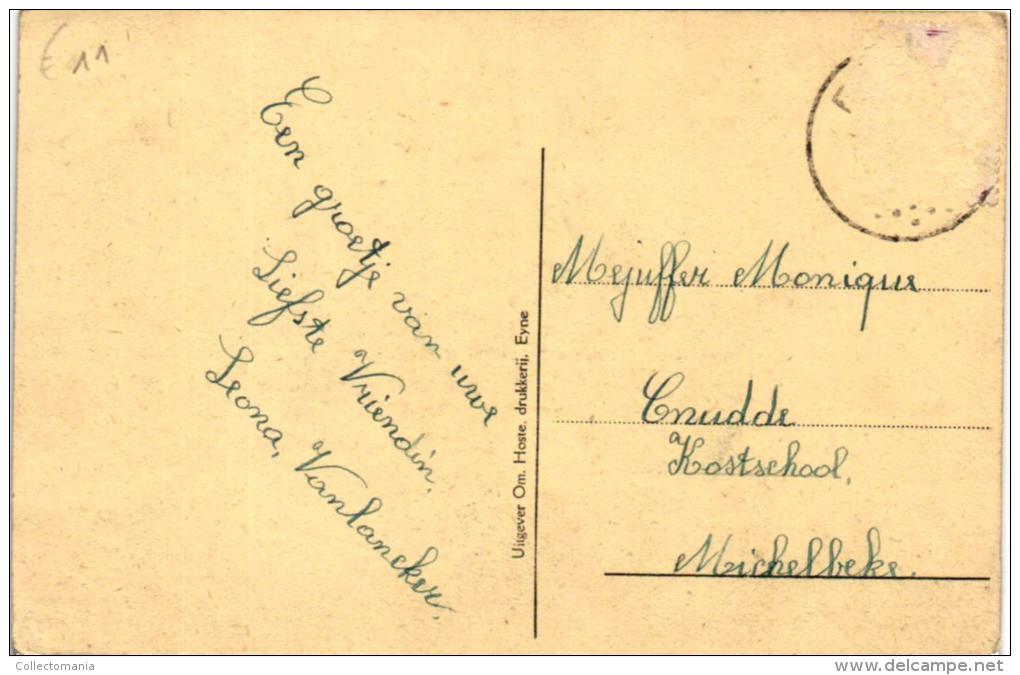 € 11
Een groetje van uwe
Liefste Vriendin.
Leona, Vanlancker,
Uitgever Om. Hoste, drukkerij, Eyne
Mejuffer Monique
Cnudde
Kostschool,
Michelbeke.
Collectomania
www.delcampe.net